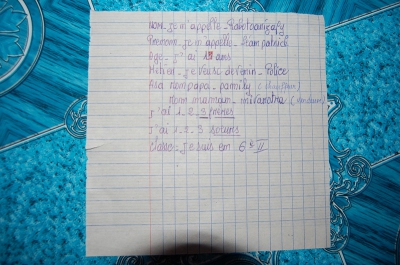 Nom - Je m'appelle - Rabotoarisafy
Prenom - Je m'appelle - Jeanpatrick
Age - J'ai ans
Metier - Je veuse devenir - Police
Asa nom papa - pamily
nom maman - mivanotra
J'ai 1-2-3 frères
J'ai 1-2-3 soeurs
Classe - Je suis em 6è II